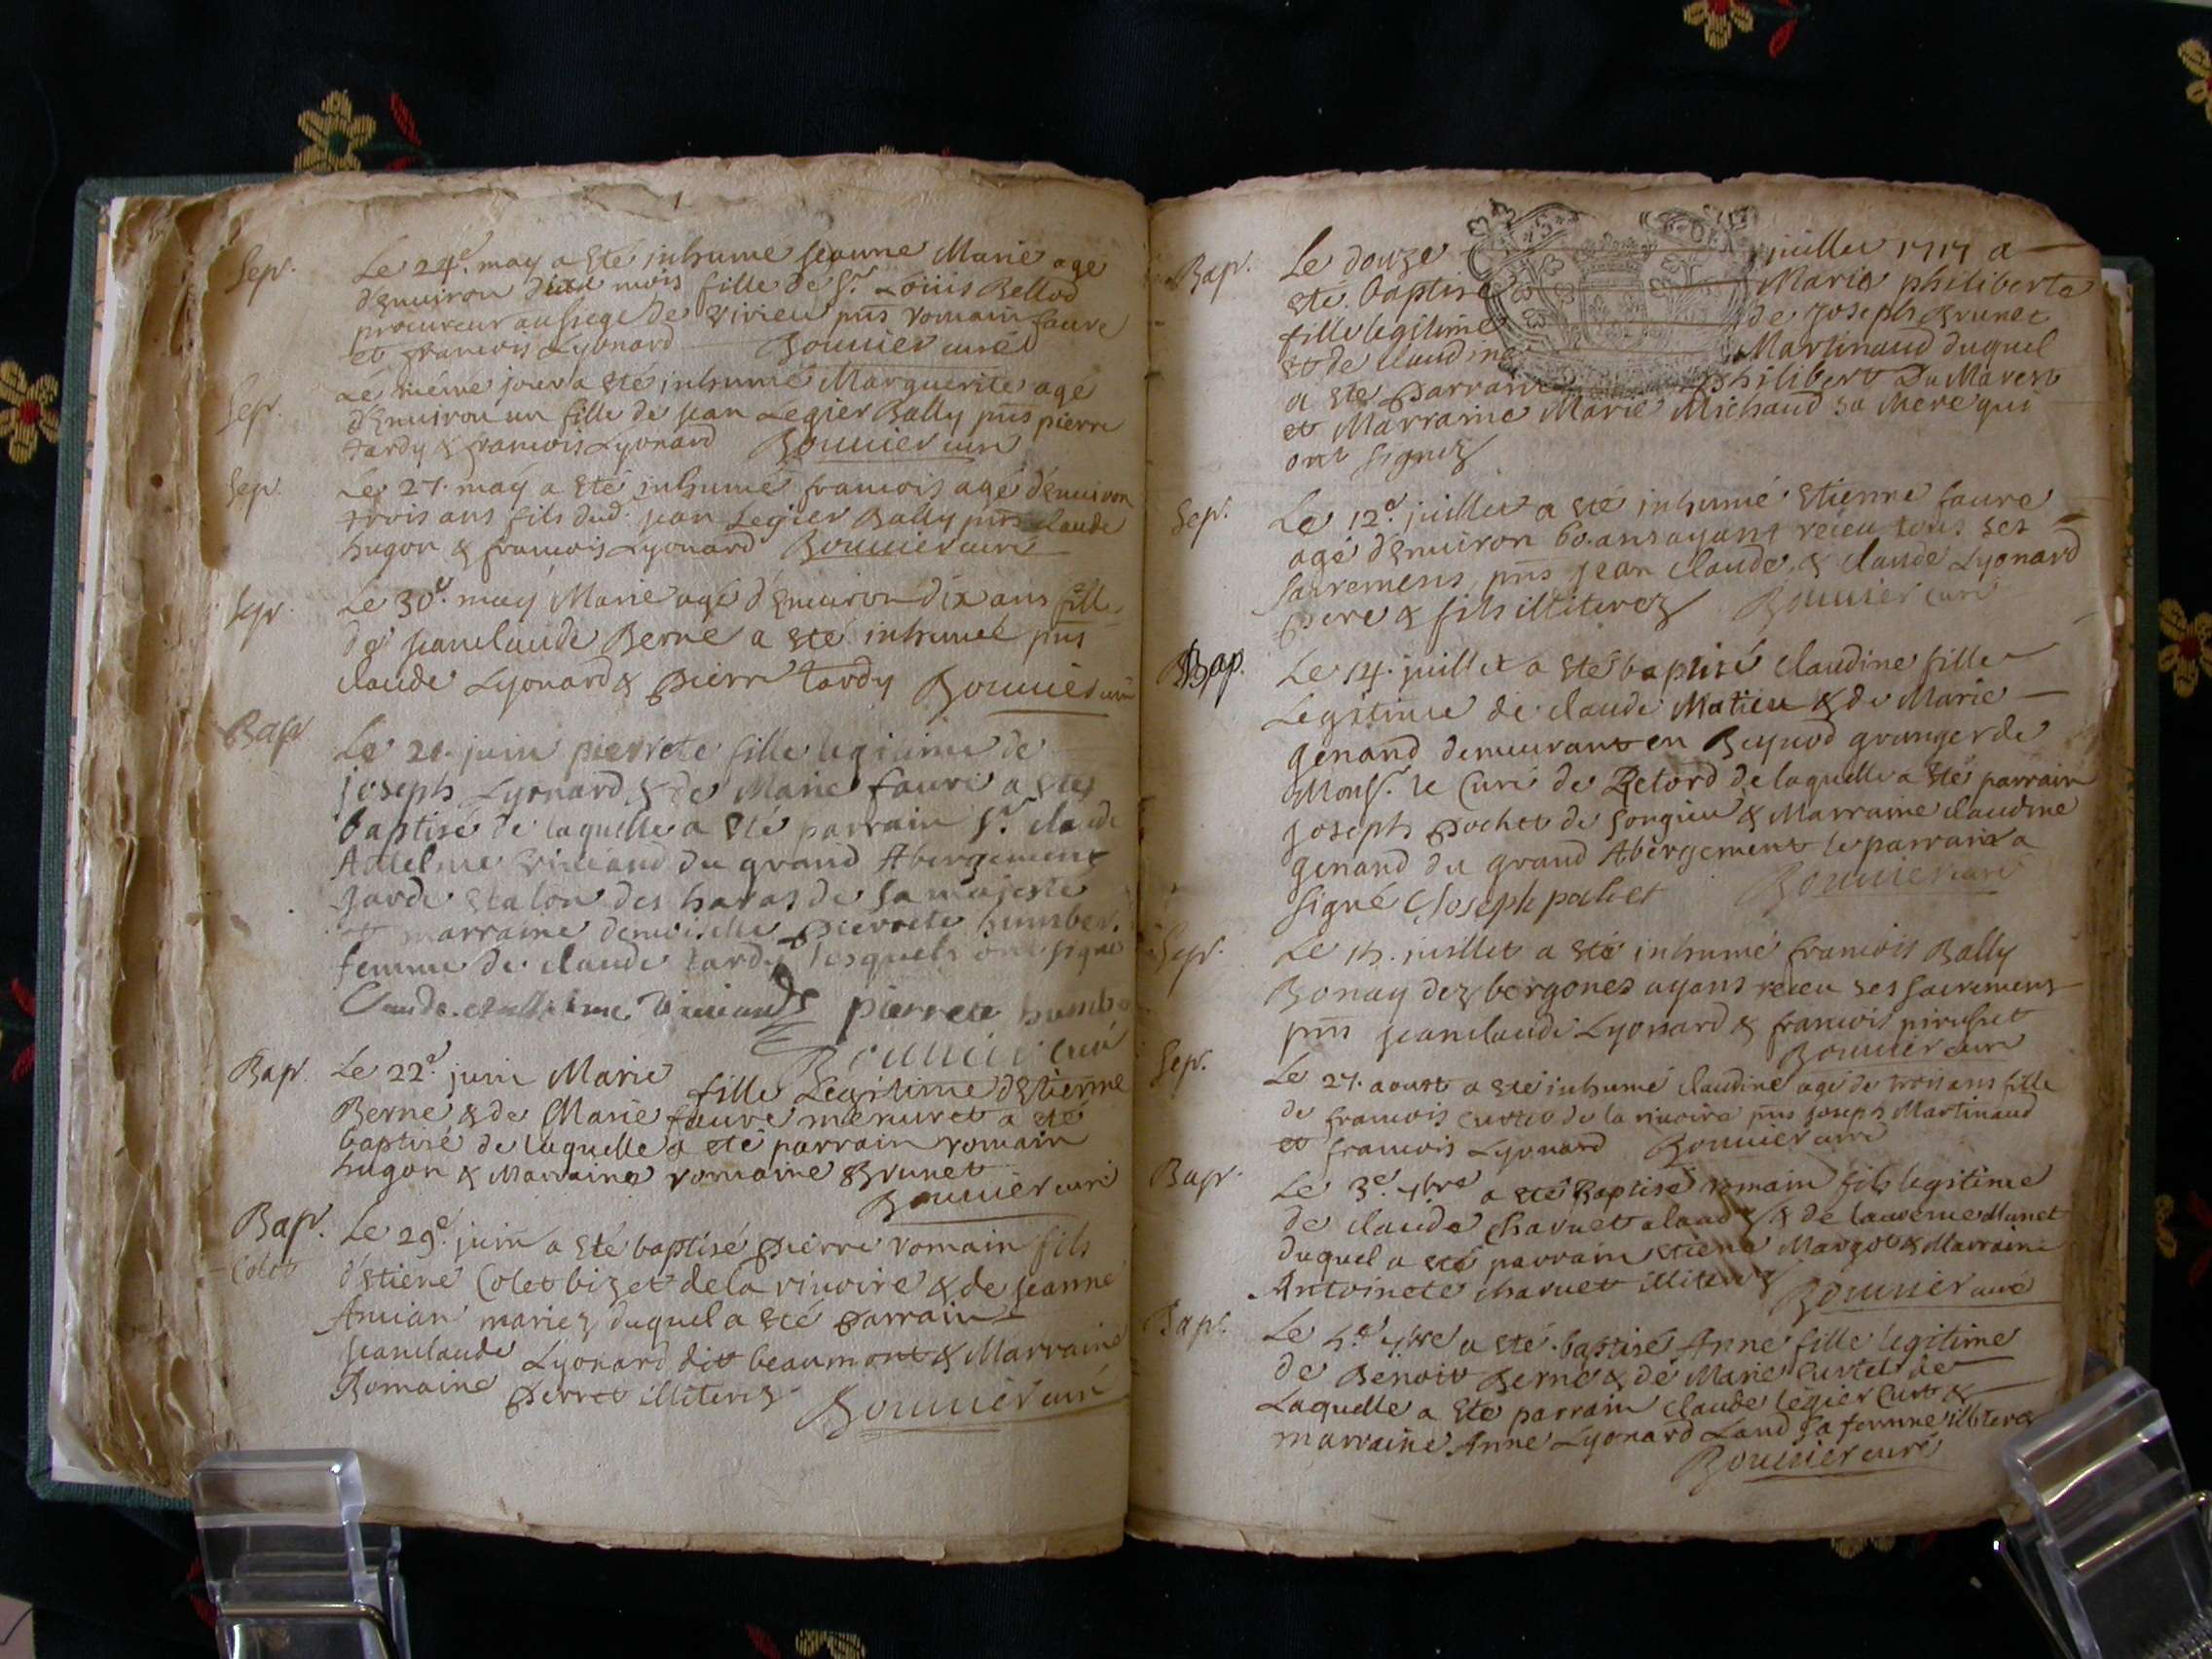 Sep. Le 24e. may a été inhumé jeanne Marie agé
d'Enuiron dixe mois fille de Sr. Loüis Bellod
procureur au siege de virieu pñs romain faure
et francois Lyonard Bouuier curé
Sep. Le même jour a été inhumé Marguerite agé
d'Enuiron un fille de jean Legier Bally pñs pierre
tardy & francois Lyonard Bouuier curé
Sep. Le 27. may a été inhumé francois agé d'Enuiron
trois ans fils dud. jean Legier Bally pñs claude
hugon & francois Lyonard Bouuier curé
Sep. Le 30e. may Marie agé d'Enuiron dix ans fille
de jeanclaude Berne a été inhumé pñs
claude Lyonard & pierre tardy Bouuier curé
Bap. Le juin pierrete fille legitime de
joseph Lyonard & de Marie faure a été
baptisé de laquelle a été parrain Sr. claude
Antelme du grand Abergement
garde etalon des haras de sa majesté
et marraine demoiselle pierrete humber
femme de claude tardy lesquels ont signé
pierrete humbe
Bouuier curé
Bap. Le 22e. juin Marie fille Legitime d'Etienne
Berne & de Marie faure menuret a été
baptisé de laquelle a été parrain romain
hugon & Marraine romaine Brunet
Bouuier curé
Bap. Le 29e. juin a été baptisé pierre romain fils
Colet d'Etiene Colet bizet de la riuoire & de jeanne
Anian mariez duquel a été parrain
jeanclaude Lyonard dit beaumont & Marraine
Romaine perret illiterez Bouuier curé
Bap. Le douze juillet 1717 a
été baptisé Marie philiberte
fille legitime de joseph Brunet
et de claudine Martinaud duquel
a été parrain philibert Du Marest
et Marraine Marie Michaud sa Mere qui
ont signez
Sep. Le 12e. juillet a été inhumé Etienne faure
agé d'Enuiron 60. ans ayant receu tous ses
sacremens pñs jean claude & claude Lyonard
pere & fils illiterez Bouuier curé
Bap. Le 14. juillet a été baptisé claudine fille
Legitime de claude Matieu & de Marie
genand demeurant en Beynod granger de
Monsr. le Curé de Retord de laquelle a été parrain
joseph pochet de songieu & Marraine claudine
genand du grand Abergement le parrain a
signé Joseph pochet Bouuier curé
Sep. Le 15. juillet a été inhumé francois Bally
Bonay dez bergonez ayant receu ses sacremens
pñs jeanclaude Lyonard & francois
Bouuier curé
Sep. Le 27. aoust a été inhumé claudine agé de trois ans fille
de francois de la riuoire pñs joseph Martinaud
et francois Lyonard Bouuier curé
Bap. Le 3e. 7bre a été Baptisé romain fils legitime
de claude charuet & de laurence
duquel a été parrain Etiene Margot & Marraine
Antoinete charuet illiterez Bouuier curé
Bap. Le 5e. 7bre a été baptisé Anne fille legitime
de Benoit Berne & de Marie Curtet de
Laquelle a été parrain claude legier Curt &
marraine Anne Lyonard Laud sa femme illiterez
Bouuier curé